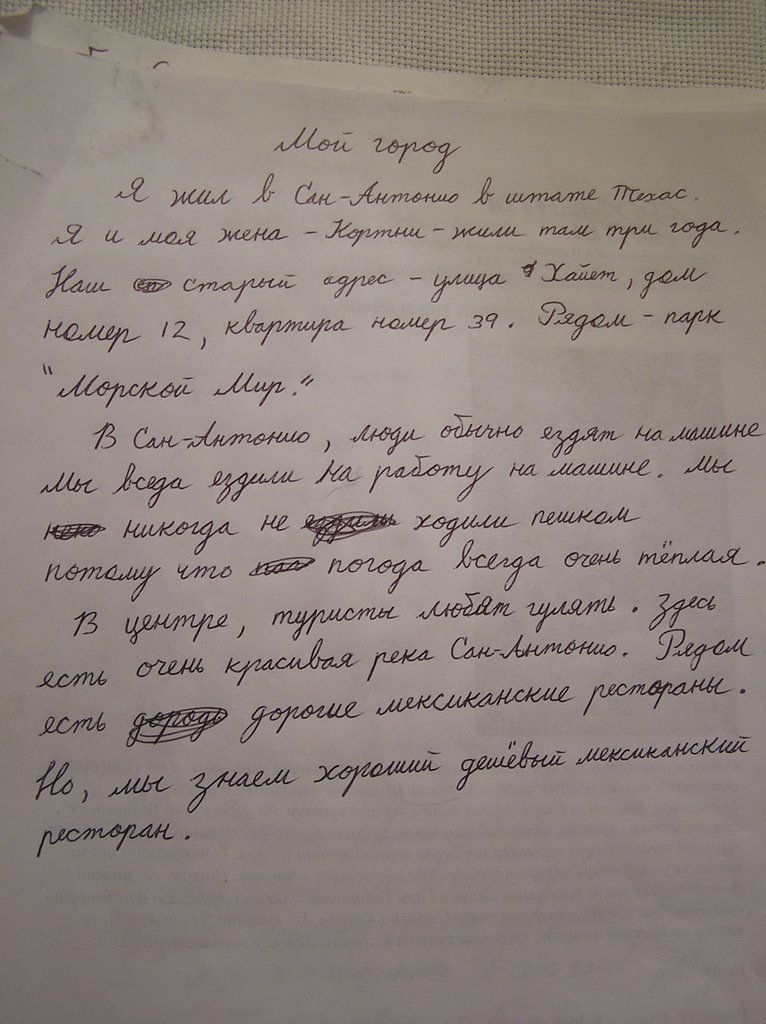 Мой город
Я жил в Сан-Антонио в штате Техас.
Я и моя жена - Кортни - жили там три года.
Наш старый адрес - улица Хайет, дом
номер 12, квартира номер 39. Рядом - парк
"Морской Мир."
В Сан-Антонио, люди обычно ездят на машине
Мы вседа ездили на работу на машине. Мы
никогда не ходили пешком
потому что погода всегда очень тёплая.
В центре, туристы любят гулять. Здесь
есть очень красивая река Сан-Антонио. Рядом
есть дорогие мексиканские рестораны.
Но, мы знаем хороший дешёвый мексиканский
ресторан.